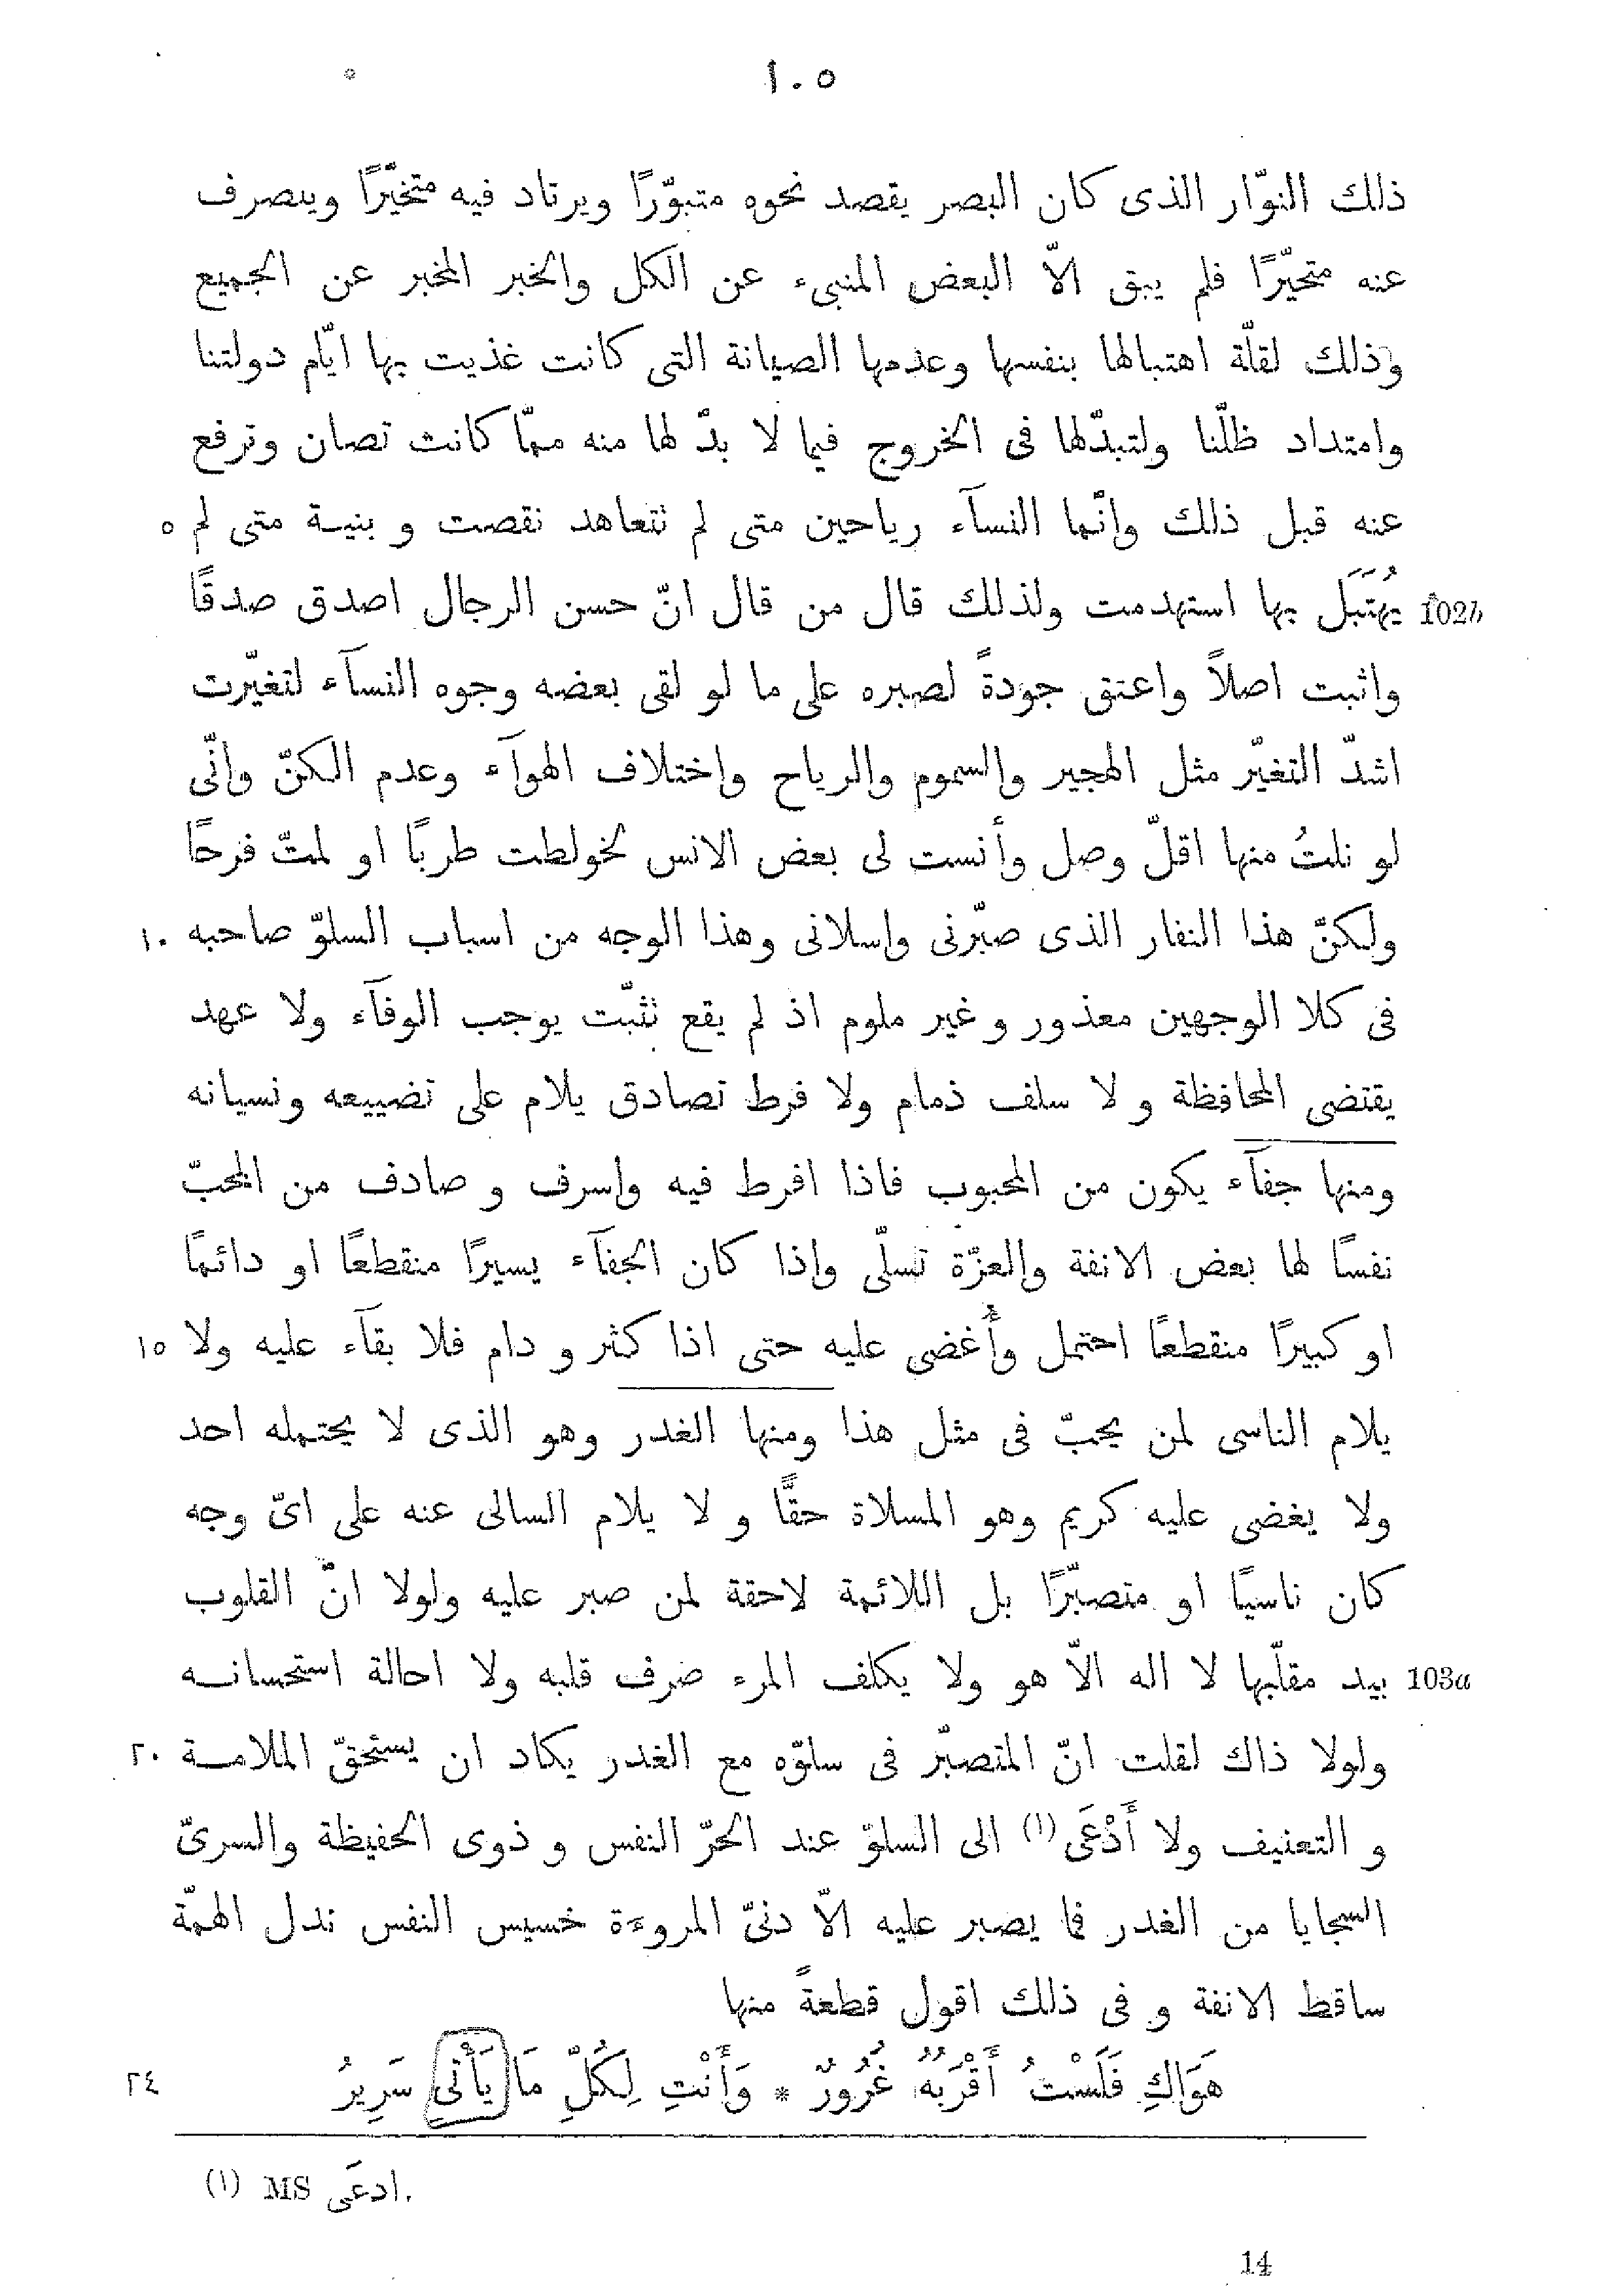 ١٠٥
ذلك النوّار الذى كان البصر يقصد نحوه متبوّرًا ويرتاد فيه متخيّرًا وينصرف
عنه متحيّرًا فلم يبق الاّ البعض المنبىء عن الكل والخبر المخبر عن الجميع
وذلك لقلّة اهتبالها بنفسها وعدمها الصيانة التى كانت غذيت بها ايّام دولتنا
وامتداد ظلّنا ولتبدّلها فى الخروج فيما لا بدّ لها منه ممّا كانت تصان وترفع
عنه قبل ذلك وانّما النسآء رياحين متى لم تتعاهد نقصت و بنيـة متى لم ٥
102b يُهْتَبَل بها استهدمت ولذلك قال من قال انّ حسن الرجال اصدق صدقًا
واثبت اصلاً واعتق جودةً لصبره على ما لو لقى بعضه وجوه النسآء لتغيّرت
اشدّ التغيّر مثل الهجير والسموم والرياح واختلاف الهوآء وعدم الكنّ وانّى
لو نلتُ منها اقلّ وصل وأنست لى بعض الانس لخولطت طربًا او لمتّ فرحًا
ولكنّ هذا النفار الذى صبّرنى واسلانى وهذا الوجه من اسباب السلوّ صاحبه ١٠
فى كلا الوجهين معذور و غير ملوم اذ لم يقع تثبّت يوجب الوفآء ولا عهد
يقتضى المحافظة و لا سلف ذمام ولا فرط تصادق يلام على تضييعه ونسيانه
ومنها جفآء يكون من المحبوب فاذا افرط فيه واسرف و صادف من المحبّ
نفسًا لها بعض الانفة والعزّة تسلّى واذا كان الجفآء يسيرًا منقطعًا او دائمًا
او كبيرًا منقطعًا احتمل وأُغضى عليه حتى اذا كثر و دام فلا بقآء عليه ولا ١٥
يلام الناسى لمن يحبّ فى مثل هذا ومنها الغدر وهو الذى لا يحتمله احد
ولا يغضى عليه كريم وهو المسلاة حقًّا و لا يلام السالى عنه على اىّ وجه
كان ناسيًا او متصبّرًا بل اللائمة لاحقة لمن صبر عليه ولولا انّ القلوب
103a بيد مقلّبها لا اله الاّ هو ولا يكلف المرء صرف قلبه ولا احالة استحسانـه
ولولا ذاك لقلت انّ المتصبّر فى سلوّه مع الغدر يكاد ان يستحقّ الملامـة ٢٠
و التعنيف ولا أَدْعَى(١) الى السلوّ عند الحرّ النفس و ذوى الحفيظة والسرىّ
السجايا من الغدر فما يصبر عليه الاّ دنىّ المروءة خسيس النفس ندل الهمّة
ساقط الانفة و فى ذلك اقول قطعةً منها
هَوَاكِ فَلَسْتُ أَقْرَبُهُ غُرُورٌ * وَأَنْتِ لِكُلِّ مَا يَأْتِى سَرِيرُ ٢٤
(١) MS ادعَى.
14